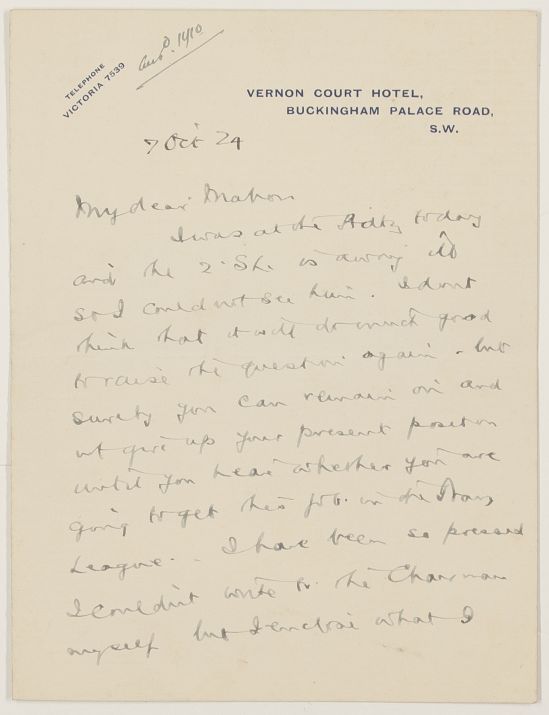 TELEPHONE
VICTORIA 7539
VERNON COURT HOTEL,
BUCKINGHAM PALACE ROAD,
S.W.
7 Oct 24
My dear Mahon
I was at the today
and the is away
so I could not see him. I dont
think that it will do much good
to raise the question again - but
surely you can remain on and
not give up your present position
until you hear whether you are
going to get this job in the Navy
League. - I have been so pressed
I couldn't write to the Chairman
myself but I enclose what I